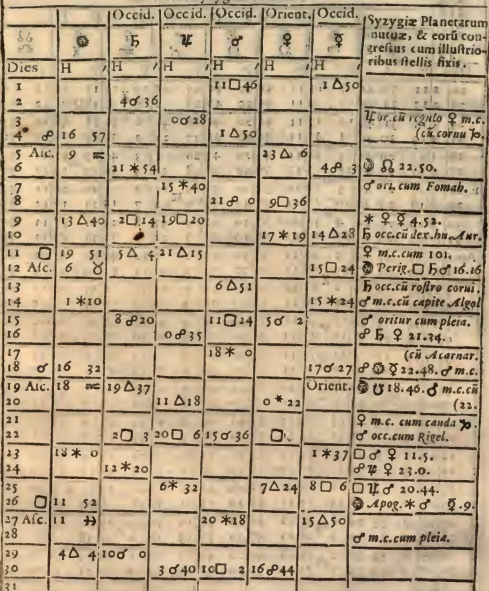 Occid. Occid. Occid. Orient. Occid. Syzygiæ Planetarum
☉ ♄ ♃ ♂ ♀ ☿ mutuæ, & eorũ con-
gressus cum illustrio-
Dies H ʹ H ʹ H ʹ H ʹ H ʹ H ʹ ribus stellis fixis.
1 11□46 1△50
2 4☌36
3 0☌28 ♃ or. cũ regulo ♀ m.c.
4 ☍ 16 57 1△50 (cũ cornu ♑.
5 Asc. 9 ♒ 23△ 6
6 21✶54 4☍ 3 ☊ 22.50.
7 15✶40 ♂ ori. cum Fomah.
8 21☍ 0 9□36
9 13△40 2□14 19□20 ✶ ♀ ☿ 4.52.
10 17✶19 14△28 ♄ occ. cũ dex. hu. Aur.
11 □ 19 51 5△ 4 21△15 ♀ m.c. cum 101.
12 Asc. 6 ♉ 15□24 Perig. □ ♄ ♂ 16.16
13 6△51 ♄ occ. cũ rostro corui.
14 1✶10 15✶24 ♂ m.c. cũ capite Algol
15 8☍20 11□24 5☌ 2 ♂ oritur cum pleia.
16 0☍35 ☍ ♄ ♀ 21.34.
17 18✶ 0 (cũ Acarnar.
18 ☌ 16 32 17☌27 ☍ ☉ ☿ 22.48. ♂ m.c.
19 Asc. 18 ♒ 19△37 Orient. ☋ 18.46. ♂ m.c. cũ
20 11△18 0✶22 (22.
21 ♀ m.c. cum cauda ♑.
22 2□ 3 20□ 6 15☌36 □ ♂ occ. cum Rigel.
23 18✶ 0 1✶37 □ ♂ ♀ 11.5.
24 12✶20 ☍ ♃ ♀ 23.0.
25 6✶32 7△24 8□ 6 □ ♃ ♂ 20.44.
26 □ 11 52 Apog. ✶ ♂ ☿.9.
27 Asc. 11 ♓ 20✶18 15△50
28 ♂ m.c. cum pleia.
29 4△ 4 10☌ 0
30 3☌40 10□ 2 16☍44
31